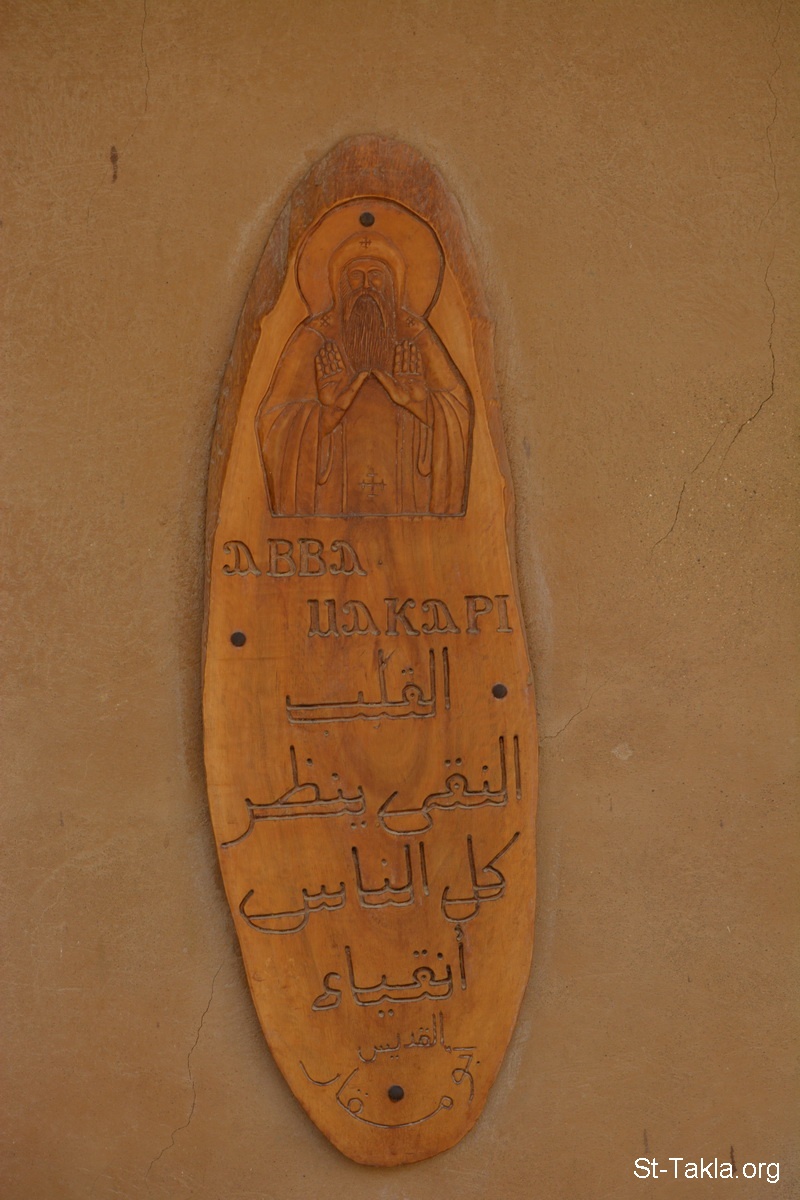 ⲀⲂⲂⲀ
ⲘⲀⲔⲀⲢⲒ
القلب
النقى ينظر
كل الناس
أنقياء
القديس
أبو مقار
St-Takla.org